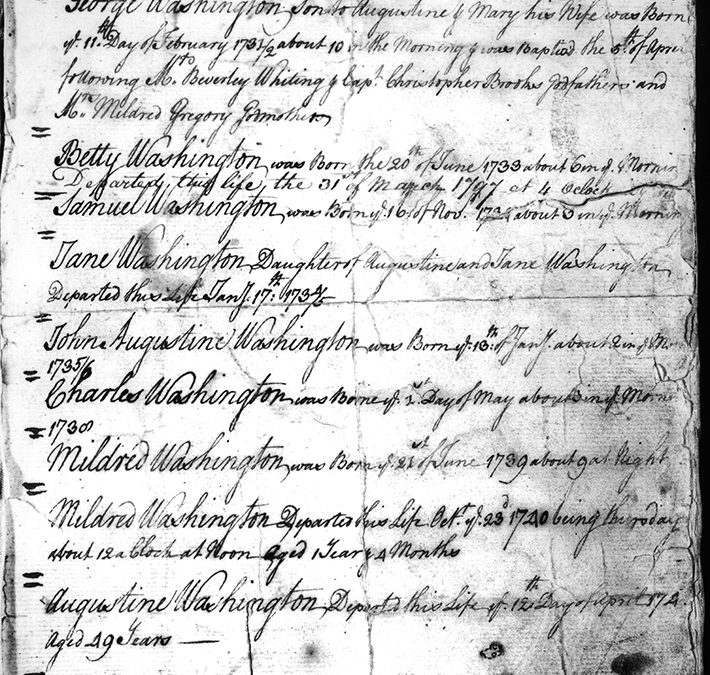 George Washington Son to Augustine & Mary his Wife was Born
yᵉ 11ᵗʰ Day of February 1731/2 about 10 in the Morning & was Baptised the 5ᵗʰ of April
following Mʳ Beverley Whiting & Capᵗ Christopher Brooks Godfathers and
Mʳˢ Mildred Gregory Godmother
Betty Washington was Born the 20ᵗʰ of June 1733 about 6 in yᵉ Mornin
Departed this life, the 31ˢᵗ of March 1797 at 4 Oclock
Samuel Washington was Born yᵉ 16 of Nov. 1734 about 3 in yᵉ Mornin
Jane Washington Daughter of Augustine and Jane Washington
Departed this Life Janʸ. 17ᵗʰ 1734/5
John Augustine Washington was Born yᵉ 13ᵗʰ of Janʸ. about 2 in yᵉ Morn
1735/6
Charles Washington was Borne yᵉ 2ᵈ Day of May about 3 in yᵉ Morne
1738
Mildred Washington was Born yᵉ 21ˢᵗ of June 1739 about 9 at Night
Mildred Washington Departed this Life Octʳ yᵉ 23ᵈ 1740 being Thursday
about 12 a Clock at Noon Aged 1 Year & 4 Months
Augustine Washington Departed this Life yᵉ 12ᵗʰ Day of April 174
Aged 49 Years